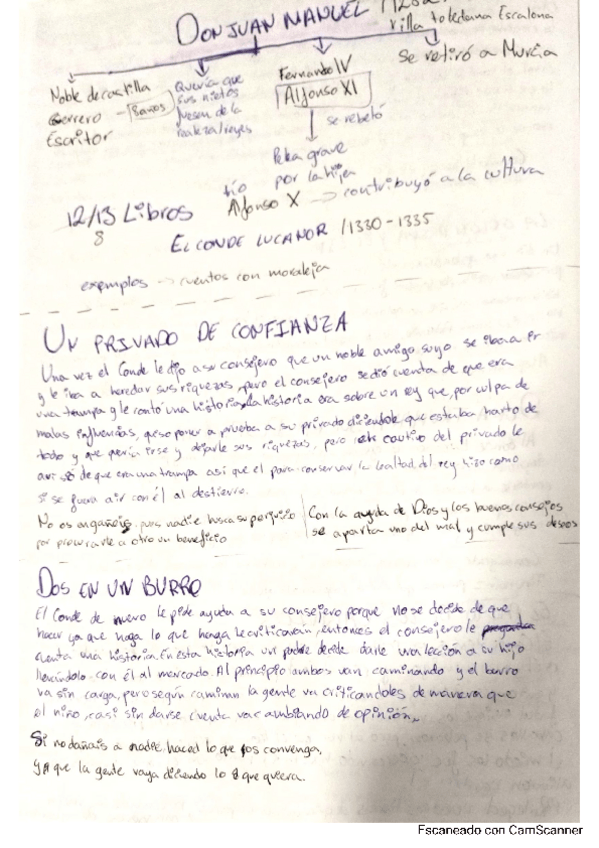 DON JUAN MANUEL
villa toledana Escalona
Se retiró a Murcia
Noble de castilla
Gerrero
8 años
Escritor
Quería que
sus nietos
fuesen de la
realeza/reyes
Fernando IV
Alfonso XI
se rebeló
Pelea grave
por la hija
tío
Alfonso X → contribuyó a la cultura
12/13 Libros
8
EL CONDE LUCANOR /1330 - 1335
exemplos → cuentos con moraleja
UN PRIVADO DE CONFIANZA
Una vez el Conde le dijo a su consejero que un noble amigo suyo se iba a ir
y le iba a heredar sus riquezas, pero el consejero se dió cuenta de que era
una trampa y le contó una historia, la historia era sobre un rey que, por culpa de
malas influencias, quiso poner a prueba a su privado diciendole que estaba harto de
todo y que quería irse y dejarle sus riquezas, pero cautivo del privado le
avisó de que era una trampa asi que el para conservar la lealtad del rey hizo como
si se fuera a ir con él al destierro.
No os engañeis, pues nadie busca su perjuicio
por procurarle a otro un beneficio
Con la ayuda de Dios y los buenos consejos
se aparta uno del mal y cumple sus deseos
DOS EN UN BURRO
El Conde de nuevo le pide ayuda a su consejero porque no se decide de que
hacer ya que haga lo que haga le criticarán, entonces el consejero le
cuenta una historia. En esta historia un padre decide darle una lección a su hijo
llevándolo con él al mercado. Al principio ambos van caminando y el burro
va sin carga, pero según caminan la gente va criticandoles de manera que
el niño, casi sin darse cuenta va cambiando de opinión.
Si no dañais a nadie, haced lo que os convenga,
y que la gente vaya diciendo lo que quiera.
Escaneado con CamScanner